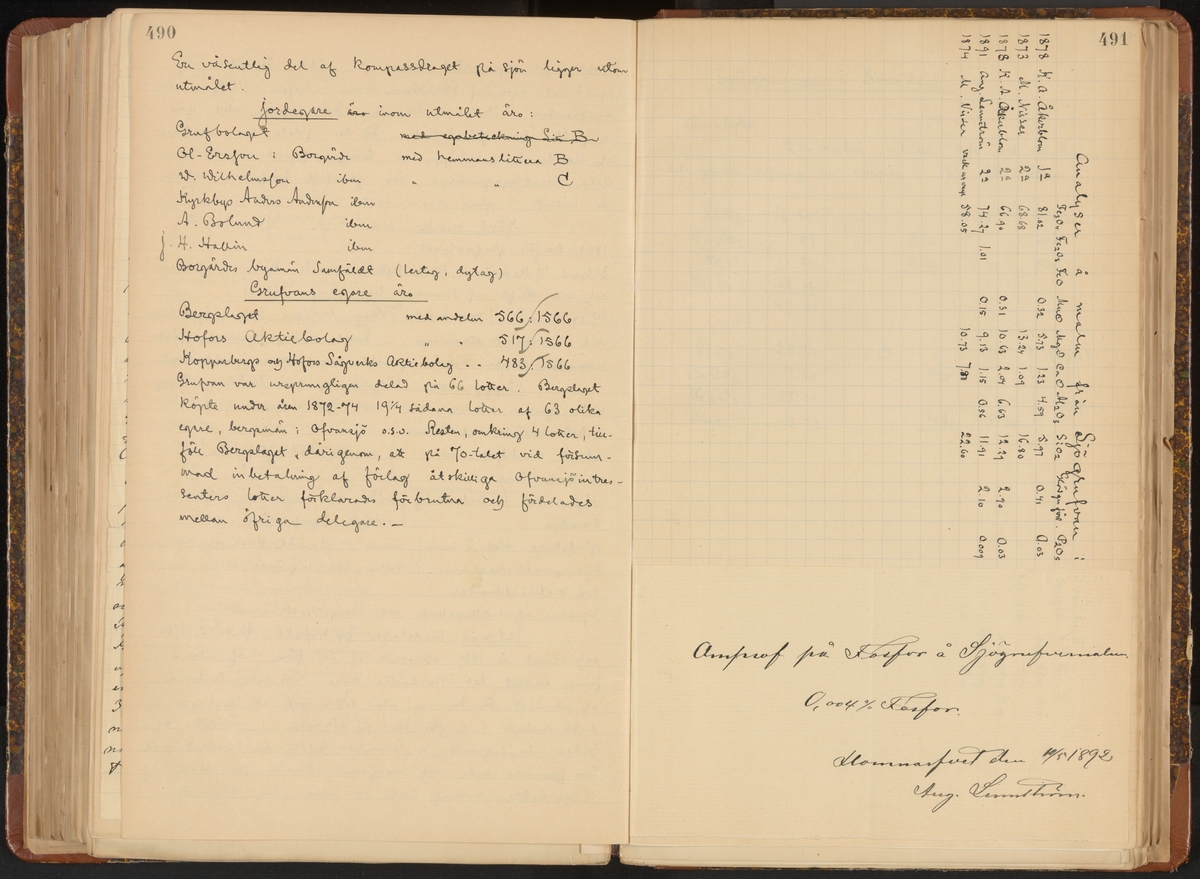 490
En väsentlig del af kompassdraget på sjön ligger utom
utmålet.
Jordegare äro inom utmålet äro:
Grufbolaget med egobeteckning Litt B
Ol-Ersson i Borgärde med hemmanslittera B
W. Wilhelmsson ibm " " C
Kyrkbys Anders Andersson ibm
A. Bolund ibm
J. H. Hallin ibm
Borgärdes byamän Samfäldt (lertag, dytag)
Grufvans egare äro
Bergslaget med andelen 566:1566
Hofors Aktiebolag " " 517:1566
Kopparbergs och Hofors Sågverks Aktiebolag .. 483:1566
Grufvan var ursprungligen delad på 66 lotter. Bergslaget
köpte under åren 1872-74 19 1/4 sådana lotter af 63 olika
egare, bergsmän i Ofvansjö o.s.v. Resten, omkring 4 lotter, till-
föll Bergslaget, därigenom, att på 70-talet vid försum-
mad inbetalning af förlag åtskilliga Ofvansjöintres-
senters lotter förklarades förbrutna och fördelades
mellan öfriga delegare. —
491
Analyser å malm från Sjögrufvan i
Fe3O4 Fe2O3 FeO MnO MgO CaO Al2O3 SiO2 Glödgnförl. P2O5
1878 K. A. Åkerblom 1a 81.02 0.32 5.73 1.23 4.59 5.97 0.41 0.03
1873 M. Nisser 2a 68.68 13.24 1.09 16.80
1878 K. A. Åkerblom 2a 66.90 0.31 10.63 2.04 6.63 12.29 2.90 0.03
1891 Aug Lennström 2a 74.27 1.01 0.15 9.13 1.15 0.56 11.91 2.10 0.009
1874 M. Nisser 58.05 10.73 7.80 22.60
Omprof på Fosfor å Sjögrufvemalm
0,004% Fosfor.
Domnarfvet den 10/5 1892
Aug. Lennström.